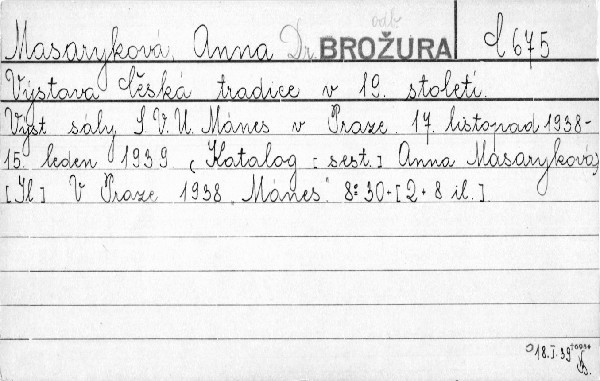 odb
Masaryková, Anna Dr. BROŽURA C 675
Výstava Česká tradice v 19. století.
Výst sály S.V.U. Mánes v Praze. 17. listopad 1938-
15. leden 1939 (Katalog: sest.] Anna Masaryková)
[Il] V Praze 1938 "Mánes". 8° 30+[2+8 il.].
18.I.39